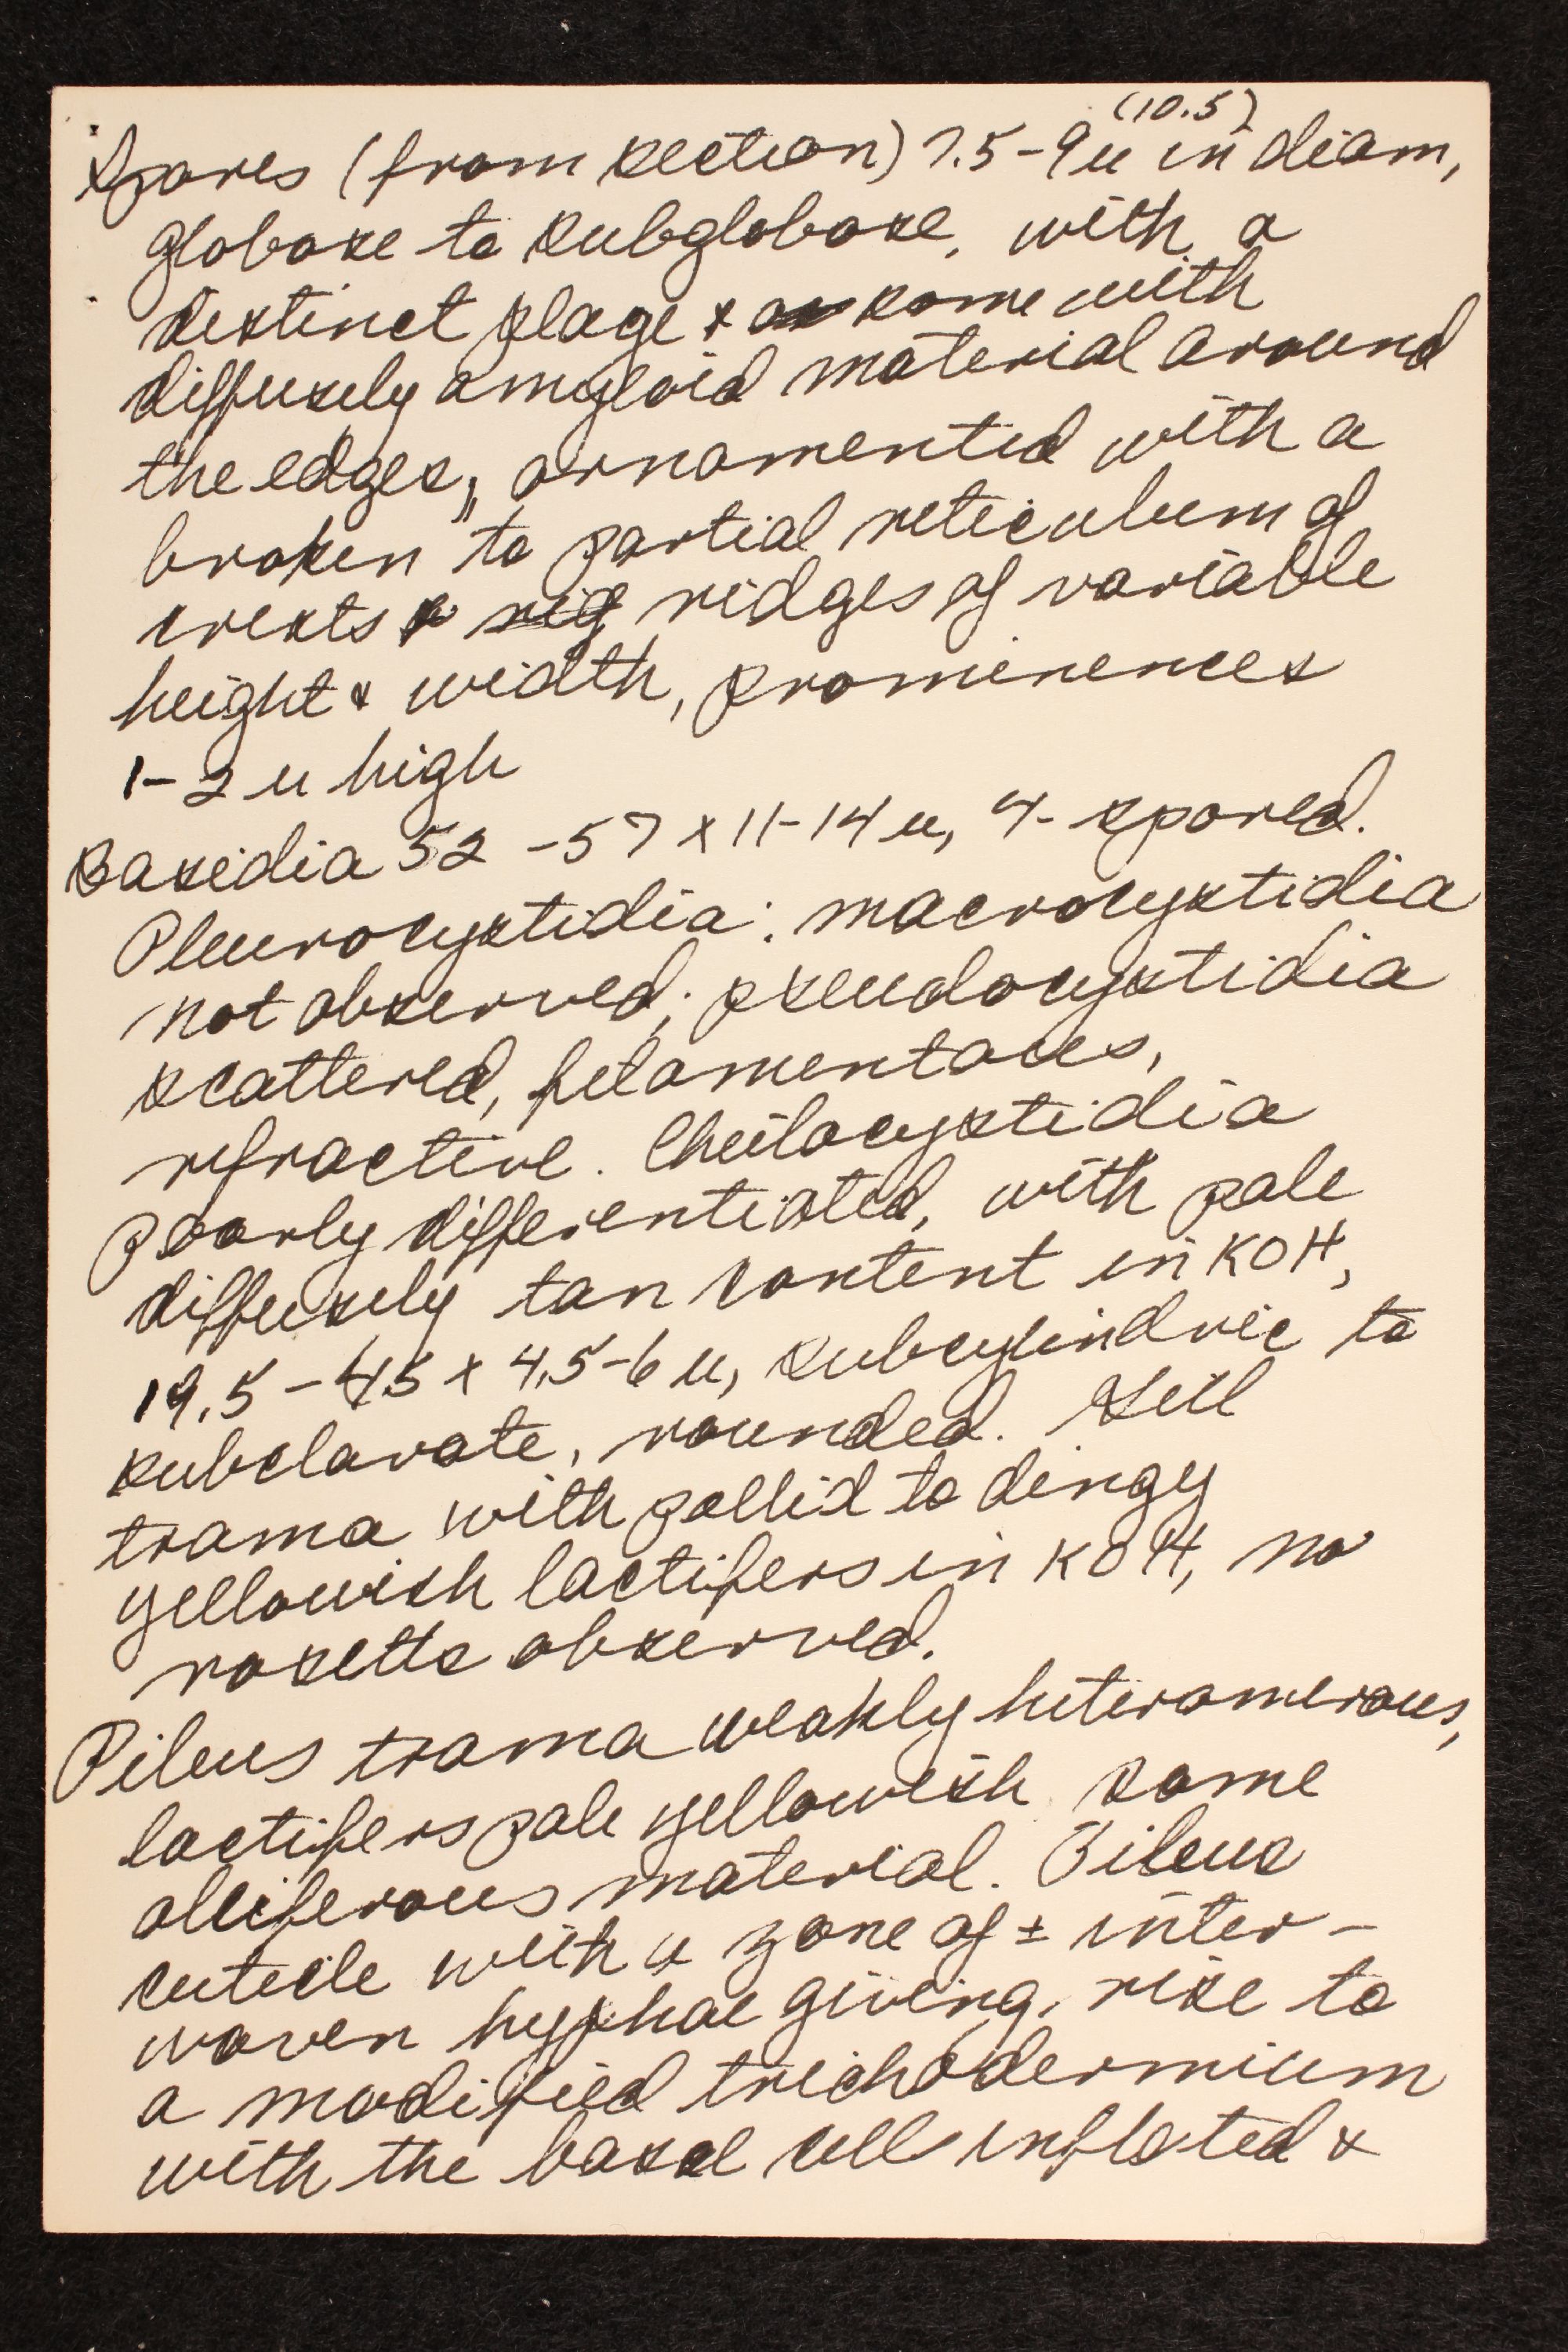 Spores (from section) 7.5-9 (10.5) u in diam,
globose to subglobose, with a
distinct plage & some with
diffusely amyloid material around
the edges, ornamented with a
broken to partial reticulum of
crests & ridges of variable
height & width, prominences
1-2 u high
Basidia 52-57 x 11-14 u, 4-spored.
Pleurocystidia: macrocystidia
not observed; pseudocystidia
scattered, filamentous,
refractive. Cheilocystidia
poorly differentiated, with pale
diffusely tan content in KOH,
19.5-45 x 4.5-6 u, subcylindric to
subclavate, rounded. Gill
trama with pallid to dingy
yellowish lactifers in KOH, no
rosetts observed.
Pileus trama weakly heteromerous,
lactifers pale yellowish some
oleiferous material. Pileus
cuticle with a zone of ± inter-
woven hyphae giving rise to
a modified trichodermium
with the basal cells inflated &